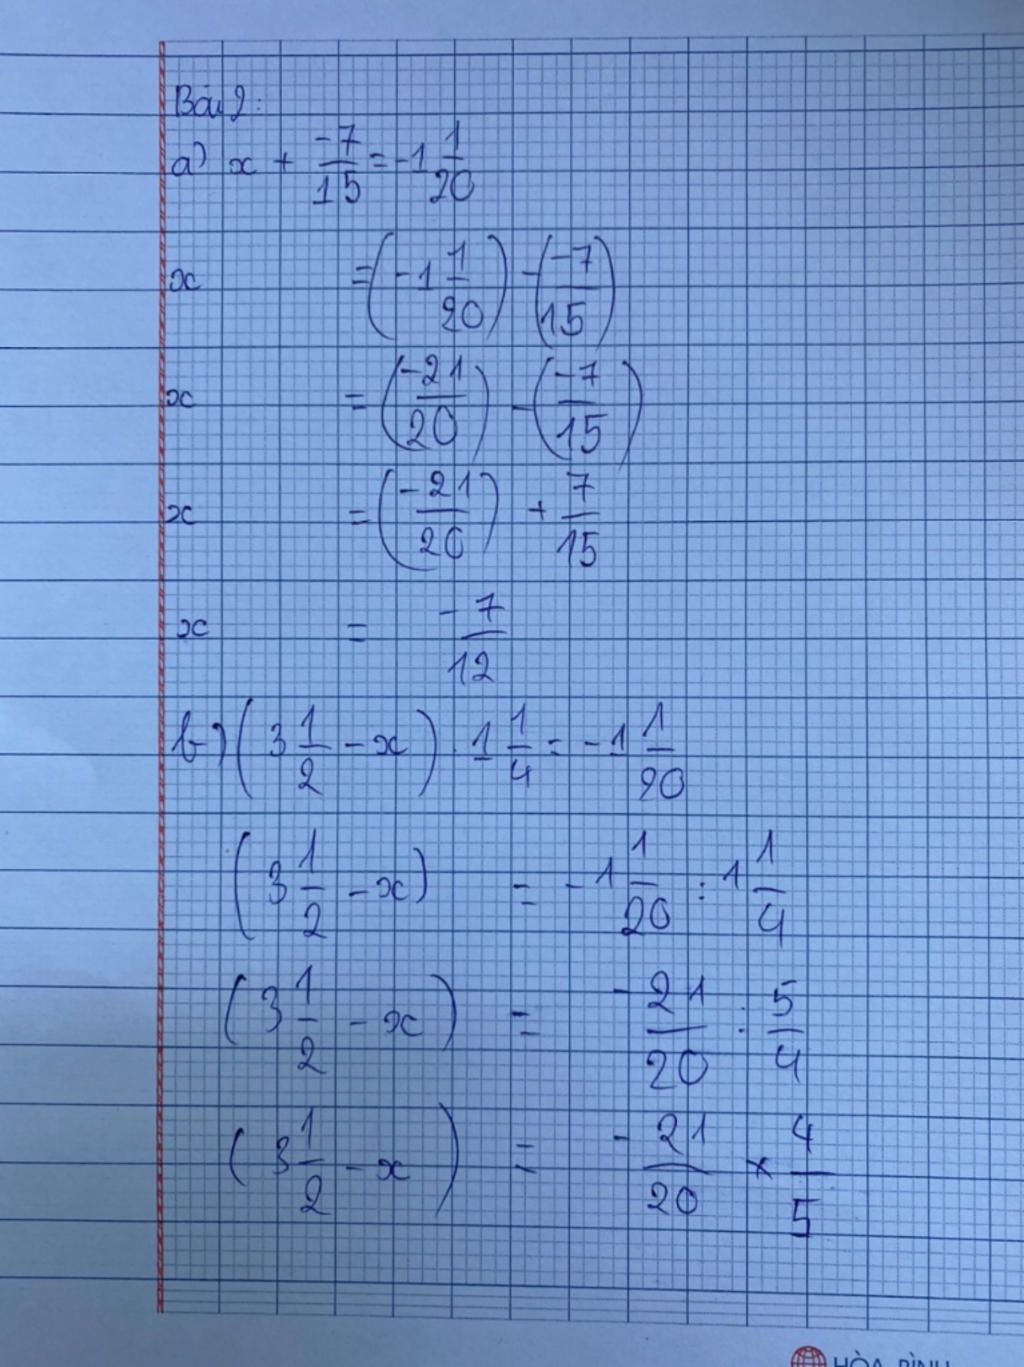 Bài 2:
a) x + -7/15 = -1 1/20
x = (-1 1/20) - (-7/15)
x = (-21/20) - (-7/15)
x = (-21/20) + 7/15
x = -7/12
b) (3 1/2 - x) . 1 1/4 = -1 1/20
(3 1/2 - x) = -1 1/20 : 1 1/4
(3 1/2 - x) = -21/20 : 5/4
(3 1/2 - x) = -21/20 × 4/5
HÒA BÌNH